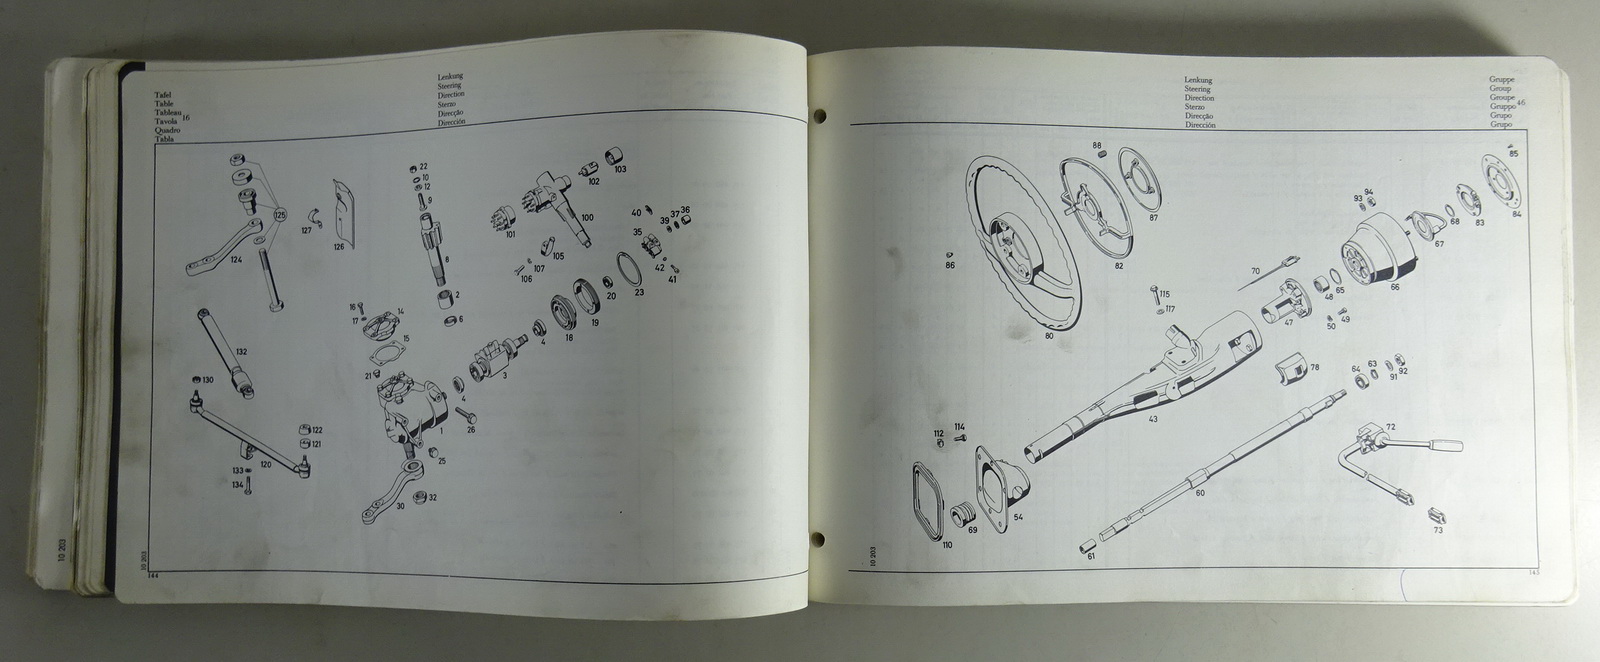 Tafel
Table
Tableau 16
Tavola
Quadro
Tabla
Lenkung
Steering
Direction
Sterzo
Direcção
Dirección
125
127
126
124
22
10
12
9
8
2
6
102
103
100
101
105
107
106
40
39 37 36
35
42
41
23
20
19
18
4
3
4
16
17
14
15
21
1
26
25
30
32
132
130
122
121
120
133
134
10 203
10 203
144
Lenkung
Steering
Direction
Sterzo
Direcção
Dirección
Gruppe
Group
Groupe
Gruppo 46
Grupo
Grupo
88
87
82
86
80
85
84
83
68
67
94
93
66
65
48
70
47
50
49
115
117
78
43
64
63
91
92
72
73
60
61
112
114
110
69
54
10 203
145